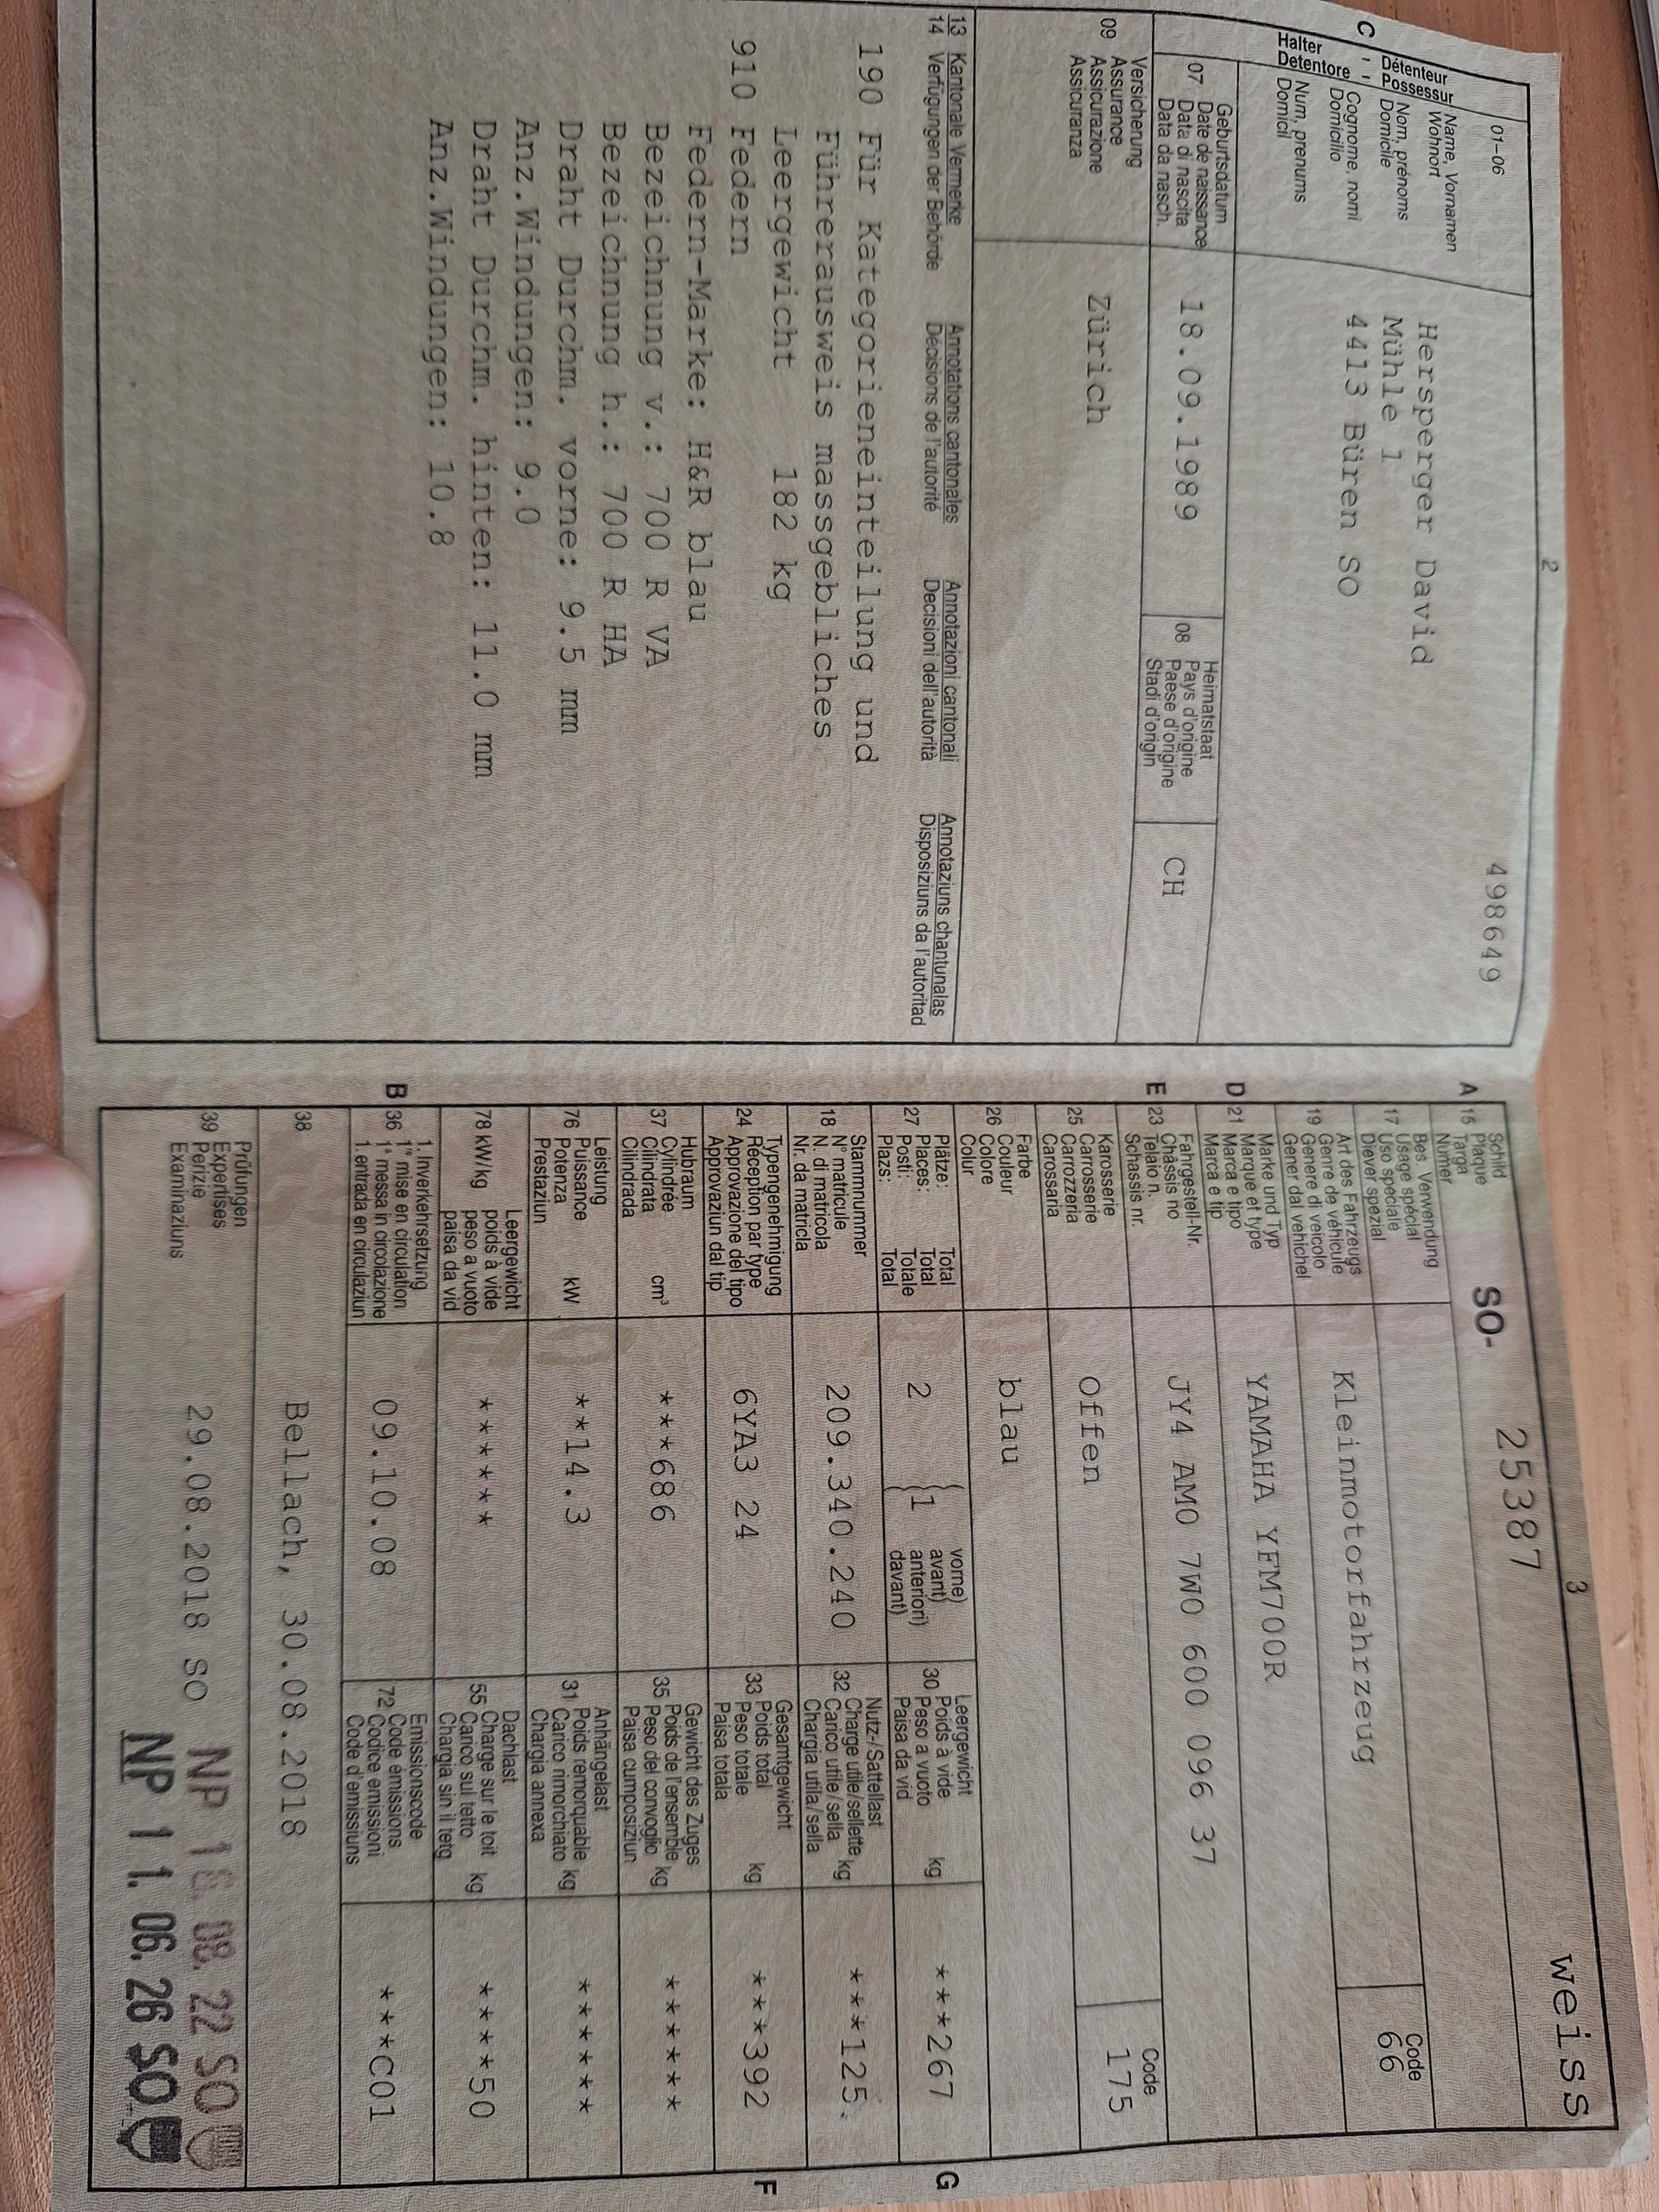 2
498649
C
Détenteur
Possessur
Halter
Detentore
01-06
Name, Vornamen
Wohnort
Nom, prénoms
Domicile
Cognome, nomi
Domicilio
Num, prenums
Domicil
Hersperger David
Mühle 1
4413 Büren SO
07
Geburtsdatum
Date de naissance
Data di nascita
Data da nasch.
18.09.1989
08
Heimatstaat
Pays d'origine
Paese d'origine
Stadi d'origin
CH
09
Versicherung
Assurance
Assicurazione
Assicuranza
Zürich
13 Kantonale Vermerke Annotations cantonales Annotazioni cantonali Annotaziuns chantunalas
14 Verfügungen der Behörde Décisions de l'autorité Decisioni dell'autorità Disposiziuns da l'autoritad
190 Für Kategorieneinteilung und
Führerausweis massgebliches
Leergewicht 182 kg
910 Federn
Federn-Marke: H&R blau
Bezeichnung v.: 700 R VA
Bezeichnung h.: 700 R HA
Draht Durchm. vorne: 9.5 mm
Anz.Windungen: 9.0
Draht Durchm. hinten: 11.0 mm
Anz.Windungen: 10.8
3
weiss
A 15
Schild
Plaque
Targa
Numer
SO- 25387
17
Bes. Verwendung
Usage spécial
Uso speciale
Diever spezial
19
Art des Fahrzeugs
Genre de véhicule
Genere di veicolo
Gener dal vehichel
Kleinmotorfahrzeug
Code
66
D 21
Marke und Typ
Marque et type
Marca e tipo
Marca e tip
YAMAHA YFM700R
E 23
Fahrgestell-Nr.
Châssis no
Telaio n.
Schassis nr.
JY4 AM0 7W0 600 096 37
25
Karosserie
Carrosserie
Carrozzeria
Carossaria
Offen
Code
175
26
Farbe
Couleur
Colore
Colur
blau
27
Plätze: Total
Places: Total
Posti: Totale
Plazs: Total
2
(1
vorne)
avant)
anteriori)
davant)
G
30
Leergewicht
Poids à vide
Peso a vuoto
Paisa da vid
kg
***267
18
Stammnummer
N° matricule
N. di matricola
Nr. da matricla
209.340.240
32
Nutz-/Sattellast
Charge utile/sellette
Carico utile/sella
Chargia utila/sella
kg
***125.
24
Typengenehmigung
Réception par type
Approvazione del tipo
Approvaziun dal tip
6YA3 24
F
33
Gesamtgewicht
Poids total
Peso totale
Paisa totala
kg
***392
37
Hubraum
Cylindrée
Cilindrata
Cilindrada
cm³
***686
35
Gewicht des Zuges
Poids de l'ensemble
Peso del convoglio
Paisa cumposiziun
kg
******
76
Leistung
Puissance
Potenza
Prestaziun
kW
**14.3
31
Anhängelast
Poids remorquable
Carico rimorchiato
Chargia annexa
kg
******
78 kW/kg
Leergewicht
poids à vide
peso a vuoto
paisa da vid
******
55
Dachlast
Charge sur le toit
Carico sul tetto
Chargia sin il tetg
kg
****50
B 36
1. Inverkehrsetzung
1re mise en circulation
1a messa in circolazione
1. entrada en circulaziun
09.10.08
72
Emissionscode
Code émissions
Codice emissioni
Code d'emissiuns
***C01
38
Bellach, 30.08.2018
39
Prüfungen
Expertises
Perizie
Examinaziuns
29.08.2018 SO
NP 16. 08. 22 SO
NP 11. 06. 26 SO